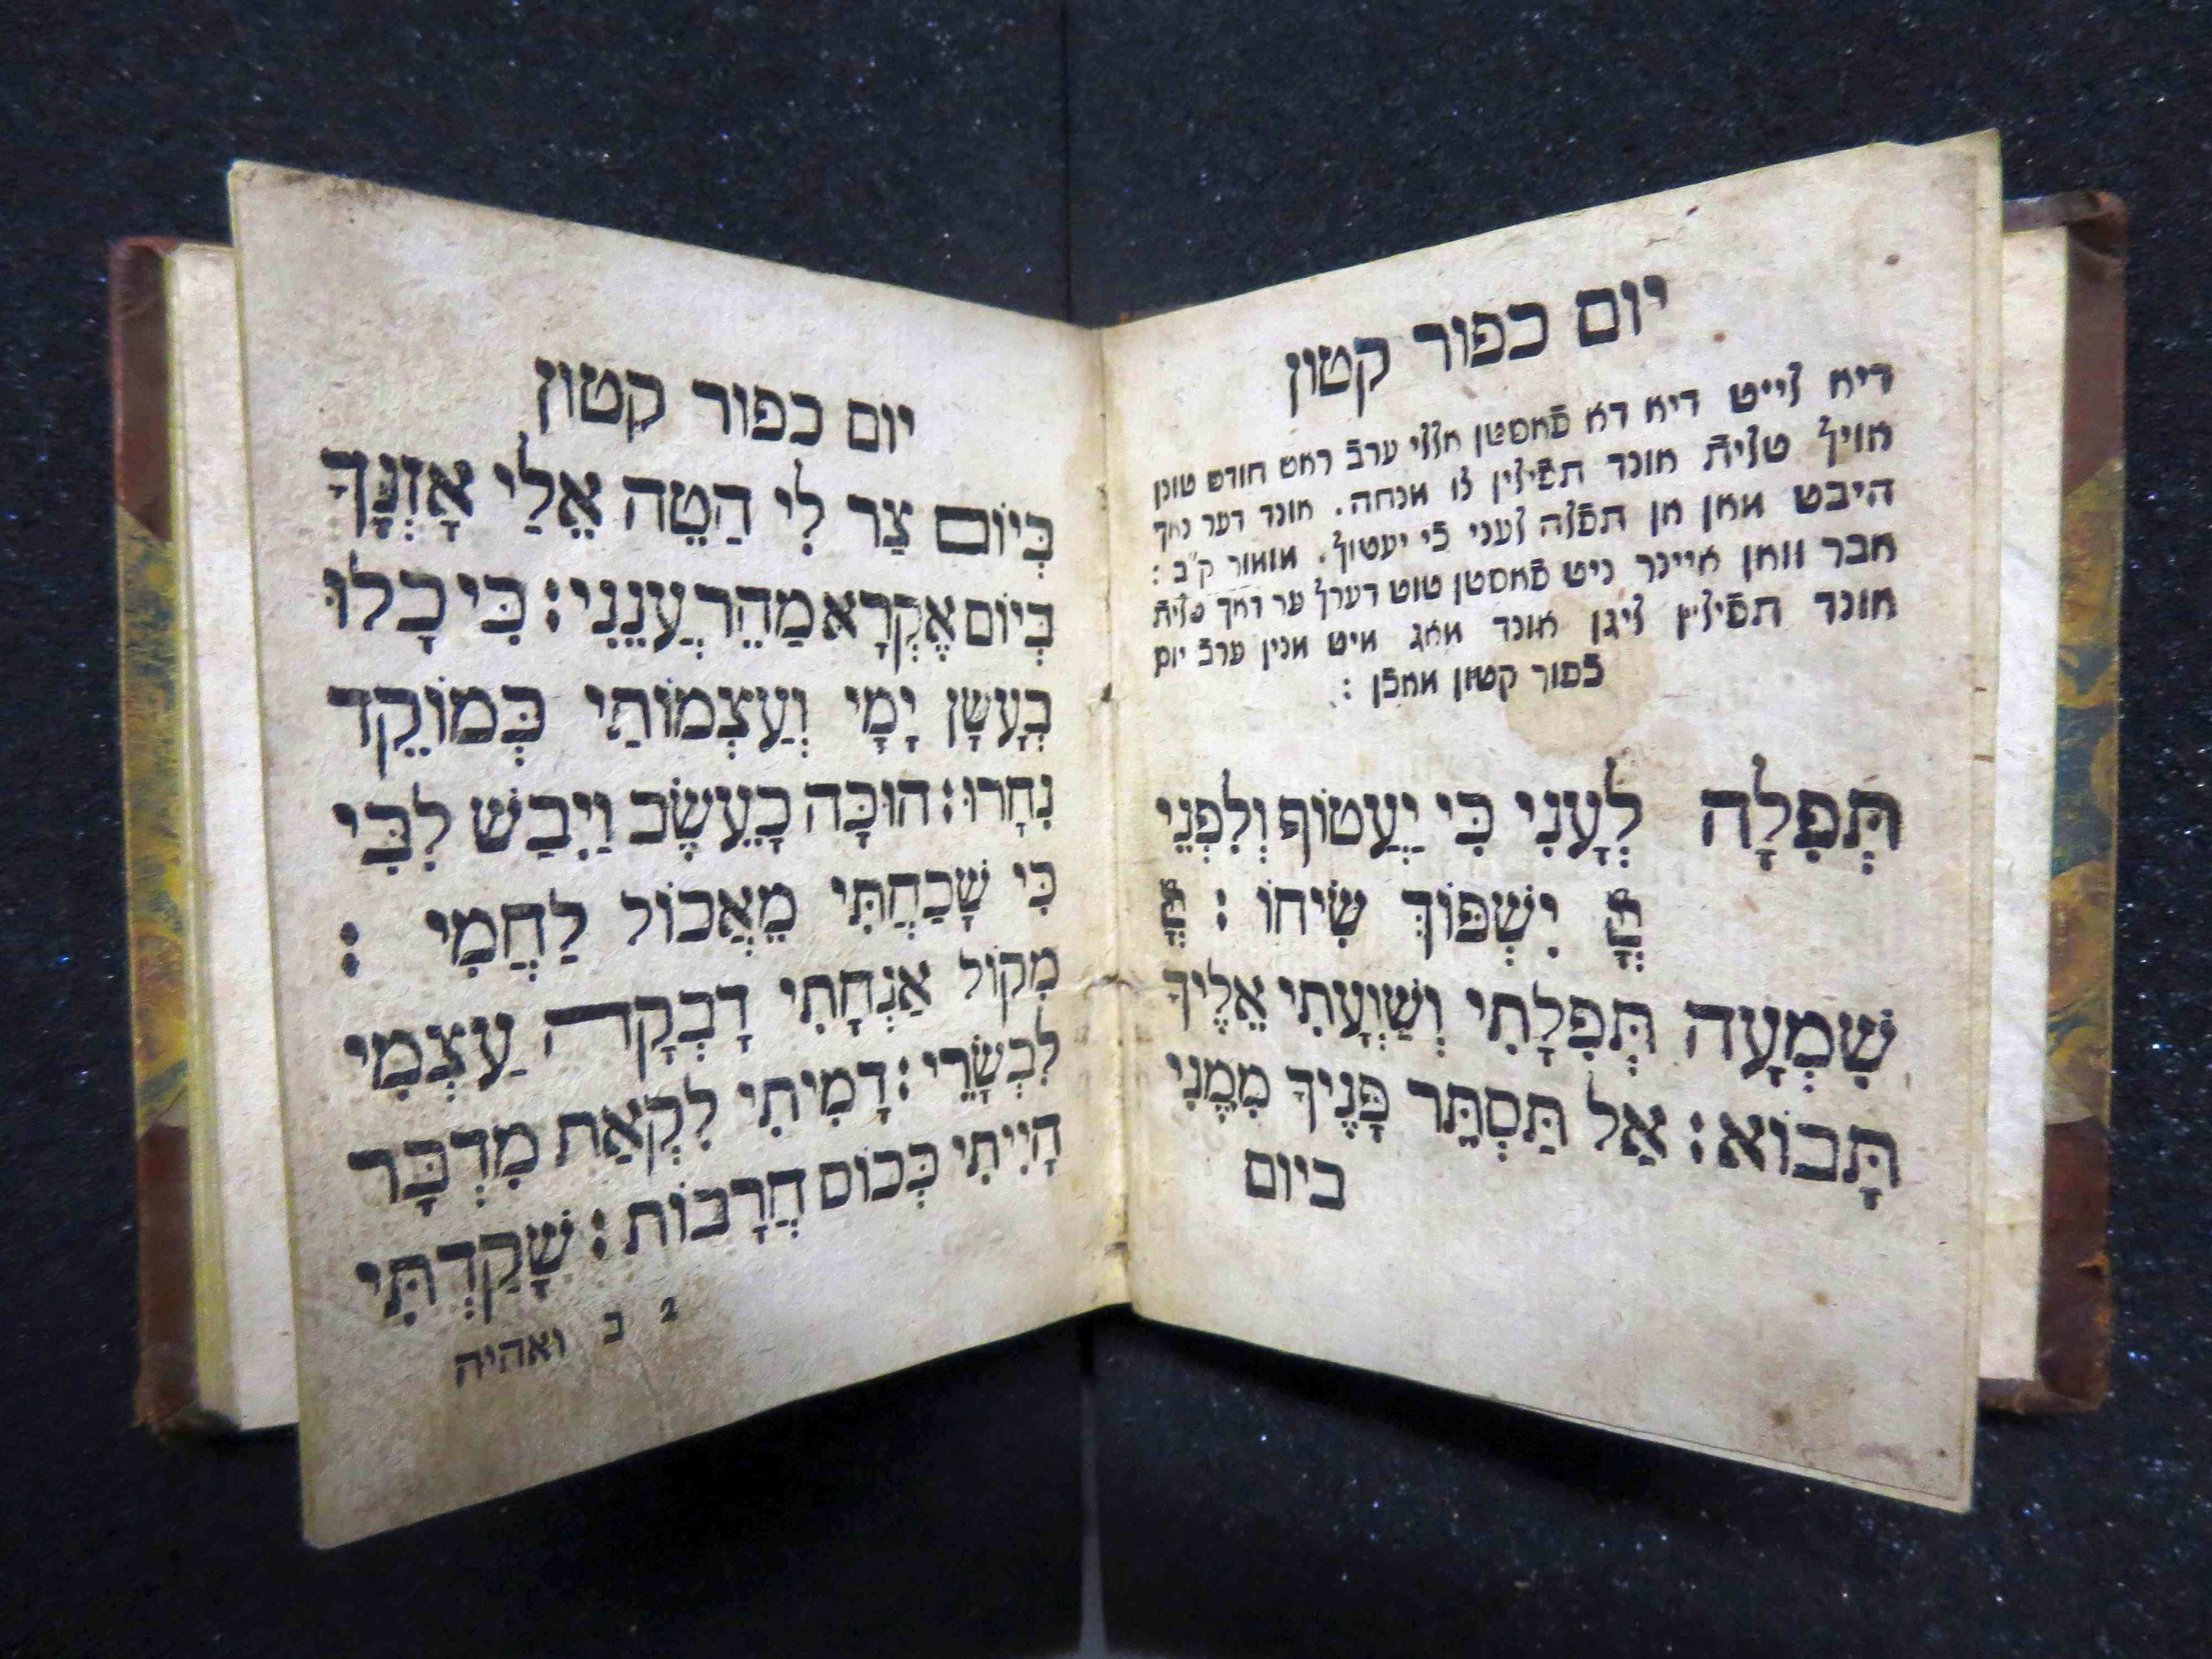 יום כפור קטון
דיא לייט דיא דא פֿאסטן אללי ערבֿ ראש חודש טונן
אויף טלית אונד תפֿילין צו מנחה. אונד דער נאך
היבט מאן אן תפֿלה לעני כי יעטוף. מזמור ק"ב :
אבר וואן איינר ניט פֿאסטן טוט דערף ער דאך טלית
אונד תפֿילין ליגן אונד מאג מיט מנין ערבֿ יום
כפור קטון מאכֿן :
תְּפִלָּה לְעָנִי כִי יַעֲטוֹף וְלִפְנֵי
יִשְׁפּוֹךְ שִׂיחוֹ :
שִׁמְעָה תְּפִלָּתִי וְשַׁוְעָתִי אֵלֶיךָ
תָּבוֹא : אַל תַּסְתֵּר פָּנֶיךָ מִמֶּנִּי
ביום
יום כפור קטון
בְּיוֹם צַר לִי הַטֵּה אֵלַי אָזְנֶךָ
בְּיוֹם אֶקְרָא מַהֵר עֲנֵנִי : כִּי כָלוּ
כְעָשָׁן יָמָי וְעַצְמוֹתַי כְּמוֹקֵד
נִחָרוּ : הוּכָּה כָעֵשֶׂב וַיִּבַשׁ לִבִּי
כִּי שָׁכַחְתִּי מֵאֲכוֹל לַחֲמִי :
מִקּוֹל אַנְחָתִי דָּבְקָה עַצְמִי
לִבְשָׂרִי : דָּמִיתִי לִקְאַת מִדְבָּר
הָיִיתִי כְּכוֹס חֳרָבוֹת : שָׁקַדְתִּי
2 ב ואהיה